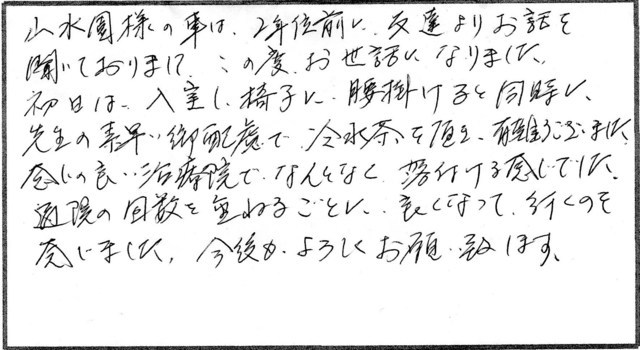 山水園様の事は、2年位前に、友達よりお話を
聞いておりまして、この度、お世話になりました。
初日は、入室し、椅子に、腰掛けると同時に、
先生の素早い御配慮で、冷水茶を頂き、有難うございました。
感じの良い治療院で、なんとなく、落付ける感じでした。
通院の回数を重ねるごとに、良くなって、行くのを
感じました。今後も、よろしくお願い致します。